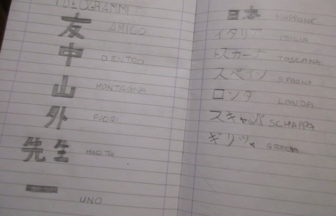 友 AMICO
中 DENTRO
山 MONTAGNA
外 FUORI
先生
一 UNO
日本 GIAPPONE
イタリア ITALIA
トスカーナ TOSCANA
スペイン SPAGNA
ロンダ LONDA
スキャパ SCHAPPA
ギリシャ GRECIA